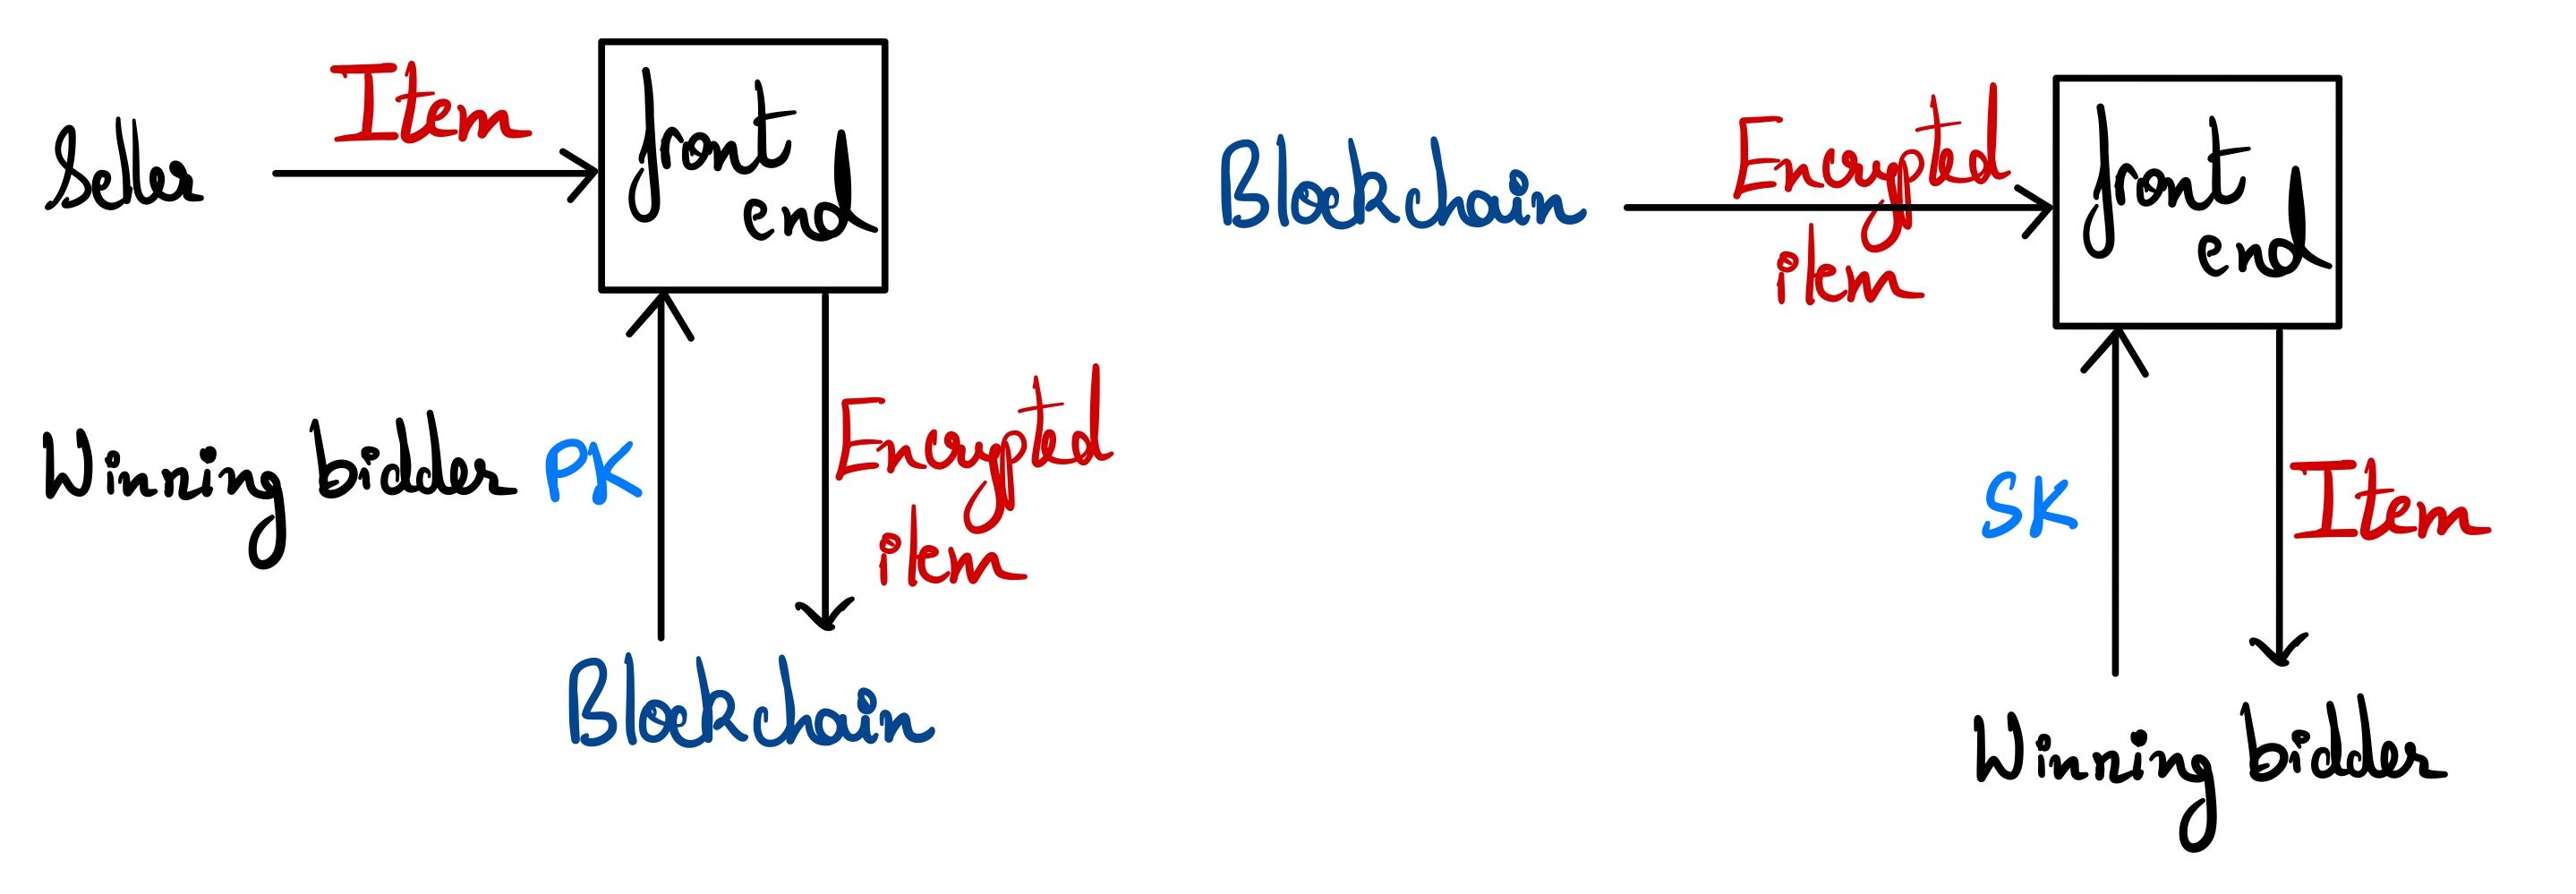 Seller
Item
front
end
Winning bidder PK
Encrypted
item
Blockchain
Blockchain
Encrypted
item
front
end
SK
Item
Winning bidder